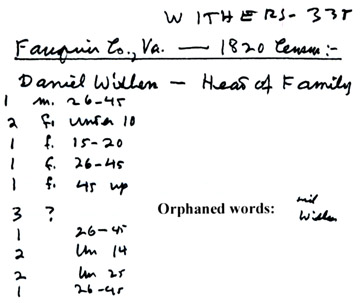 WITHERS - 335
Fauquier Co., Va. — 1820 Census:-
Daniel Withers — Head of Family
1 m. 26-45
2 f. under 10
1 f. 15-20
1 f. 26-45
1 f. 45 up
3 ?
Orphaned words:
Withers
1 26-45
2 Un 14
2 Un 25
1 26-45